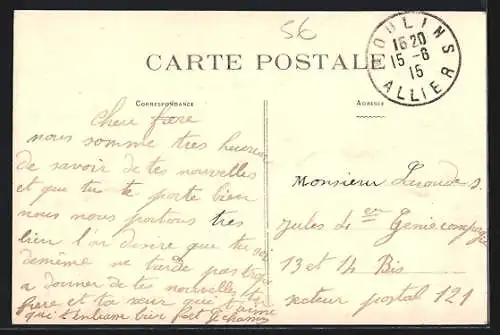 56
MOULINS
16 20
15 - 6
15
ALLIER
CARTE POSTALE
CORRESPONDANCE
ADRESSE
cheu frere
nous somme tres heureu
de savoir de tes nouvelles
et que tu te porte bien
nous nous portions tres
bien l'on desire que tu
demême ne tarde pas trop
a donner de tes nouvelle ton
frere et ta sœur qui t'aime
qui t'enbrasse bien fort
Monsieur
jules 4 em Genie compagie
13 et 14 Bis
secteur postal 121